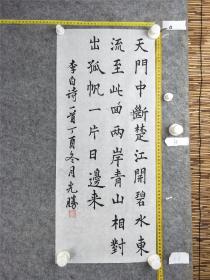 天門中斷楚江開碧水東
流至此回兩岸青山相對
出孤帆一片日邊来
李白诗一首丁酉冬月光勝